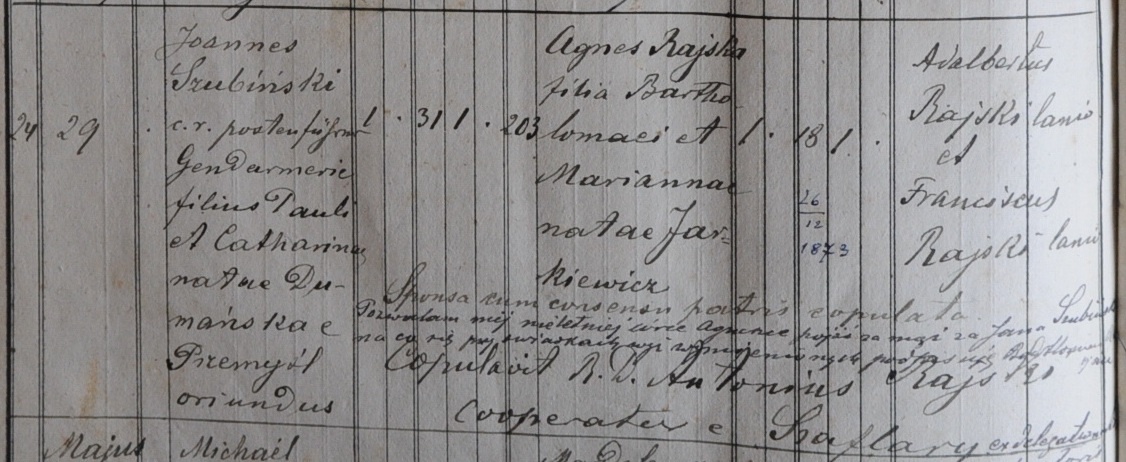 24 29 Joannes
Szubiński
c. r. postenführer
Gendarmerie
filius Pauli
et Catharinae
natae Du-
mańskae
Przemyśl
oriundus
1 . 31 1 . 203
Agnes Rajska
filia Bartho
lomaei et
Mariannae
natae Jar=
kiewicz
1 . 18 1 .
26
12
1873
Adalbertus
Rajski lanio
et
Franciscus
Rajski lanio
Sponsa cum consensu patris copulata.
Pozwalam mej nieletniej córce Agnence pójść za mąż za Jana Szubińskiego
na co się przy świadkach wyżej wymienionych podpisuję
Copulavit R. D. Antonius Rajski
Cooperator e Szaflary ex delegatione
Majus Michaël